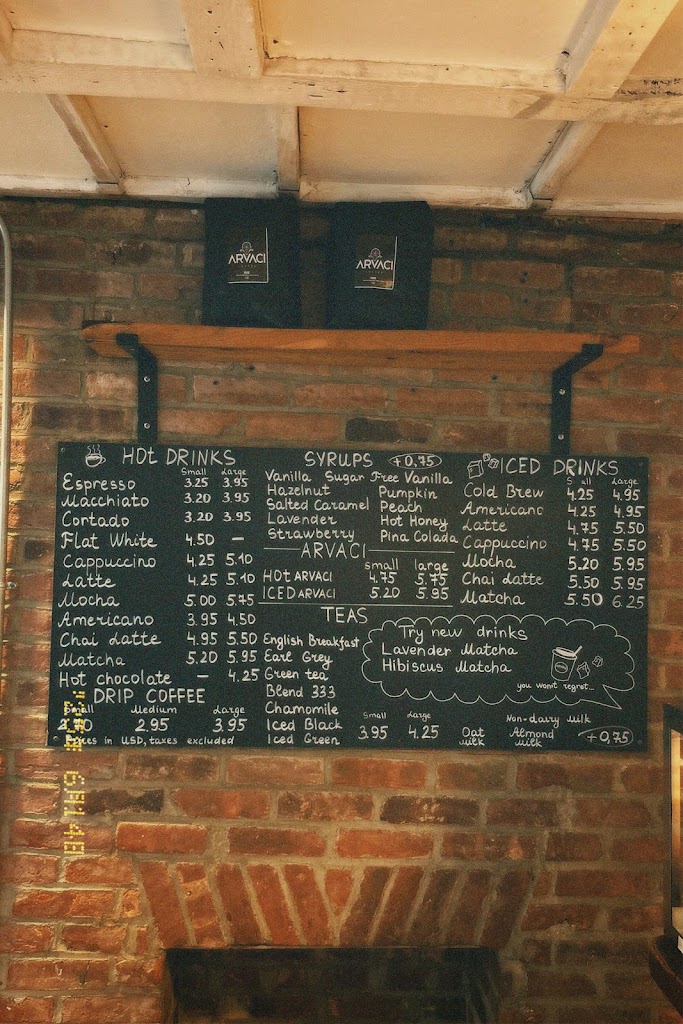 ARVACI
ARVACI
HOt DRINKS
Small Large
Espresso 3.25 3.95
Macchiato 3.20 3.95
Cortado 3.20 3.95
Flat White 4.50 —
Cappuccino 4.25 5.10
Latte 4.25 5.10
Mocha 5.00 5.75
Americano 3.95 4.50
Chai Latte 4.95 5.50
Matcha 5.20 5.95
Hot chocolate — 4.25
DRIP COFFEE
Small Medium Large
2.95 3.95
in USD, taxes excluded
SYRUPS +0,75
Vanilla Sugar Free Vanilla
Hazelnut Pumpkin
Salted Caramel Peach
Lavender Hot Honey
Strawberry Pina Colada
ARVACI
small large
HOt ARVACI 4.75 5.75
ICED ARVACI 5.20 5.95
TEAS
English Breakfast
Earl Grey
Green tea
Blend 333
Chamomile
Iced Black
Iced Green
Small Large
3.95 4.25
ICED DRINKS
Large
Cold Brew 4.25 4.95
Americano 4.25 4.95
Latte 4.75 5.50
Cappuccino 4.75 5.50
Mocha 5.20 5.95
Chai Latte 5.50 5.95
Matcha 5.50 6.25
Try new drinks
Lavender Matcha
Hibiscus Matcha
you wont regret...
Non-dairy milk
Oat milk Almond milk +0,75